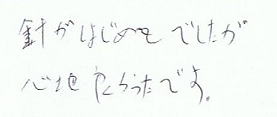 針がはじめてでしたが
心地よかったです。